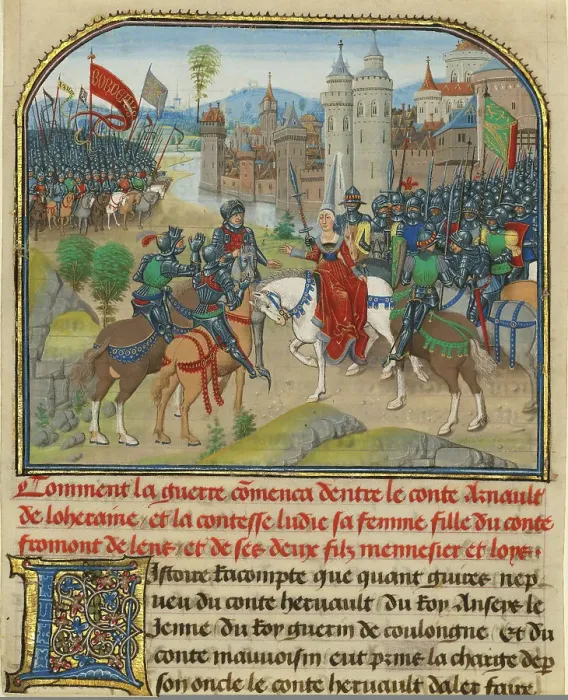 Comment la guerre cõmenca dentre le conte Arnault
de loheraine, et la contesse ludie sa femme fille du conte
fromont de lens, et de ses deux filz mennesier et loys
L Istoire Racompte que quant guires nep
ueu du conte heruault du Roy Anseys le
Jenne du Roy guerin de coulongne Et du
conte mauuoisin eut prinse la charge de p
son oncle le conte heruault daler faire